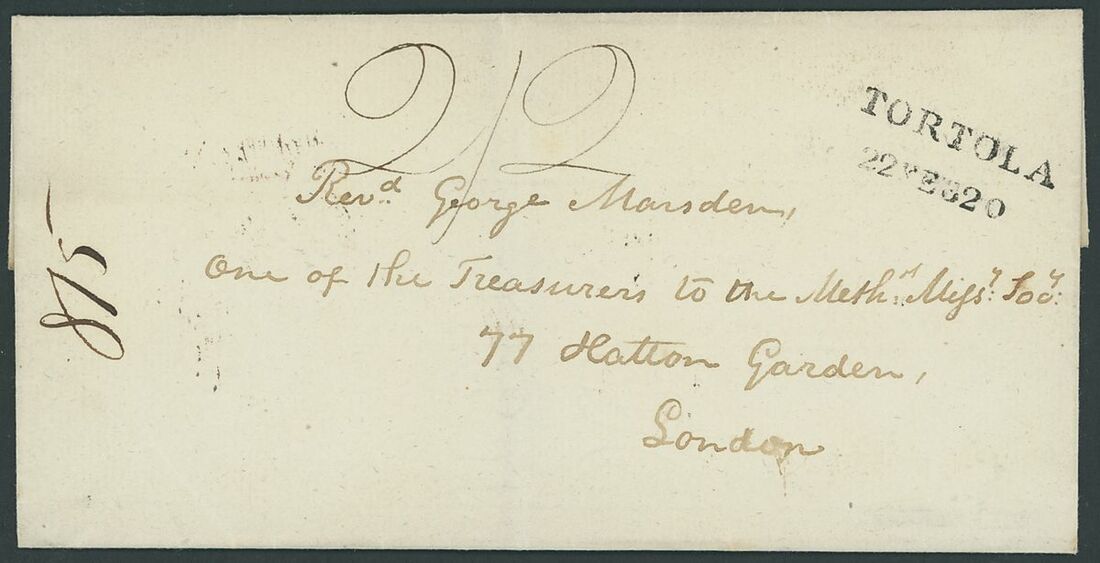 2/2
TORTOLA
22 FE 820
Rev.d George Marsden,
One of the Treasurers to the Meth.t Miss.y Soc.y
77 Hatton Garden,
London